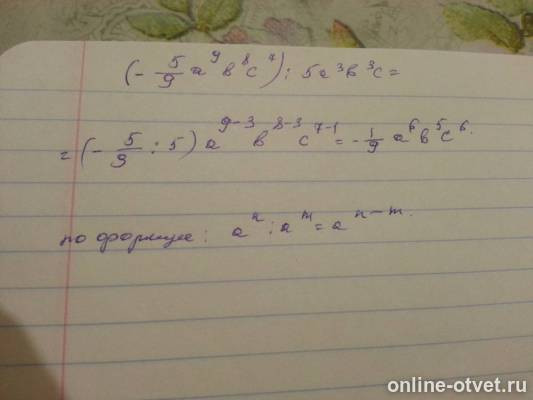 (- 5/9 a⁹b⁸c⁷) : 5a³b³c =
= (- 5/9 : 5) a⁹⁻³ b⁸⁻³ c⁷⁻¹ = - 1/9 a⁶b⁵c⁶.
по формуле: aⁿ : aᵐ = aⁿ⁻ᵐ.
online-otvet.ru